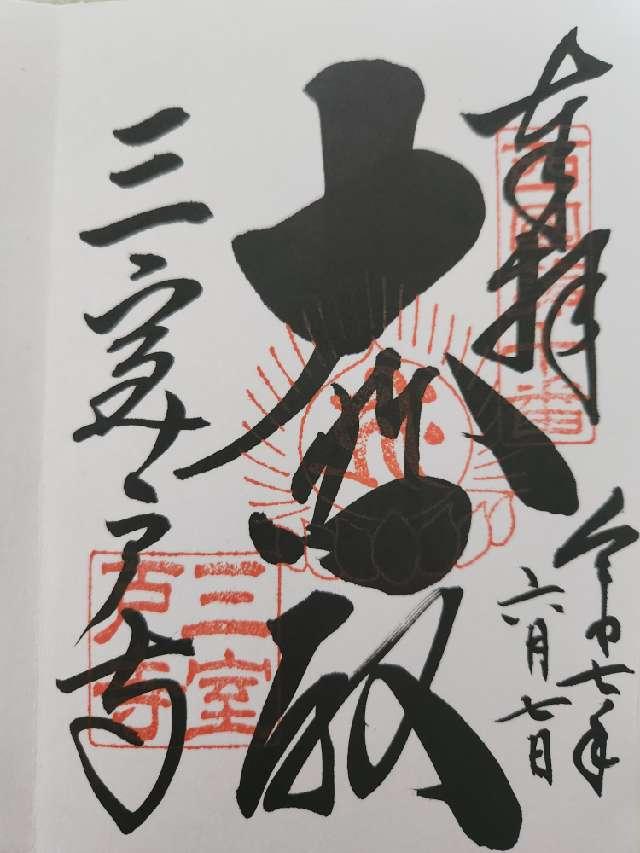 奉拝
西國第十番
令和七年
六月七日
大悲殿
三室戸寺
三室戸寺